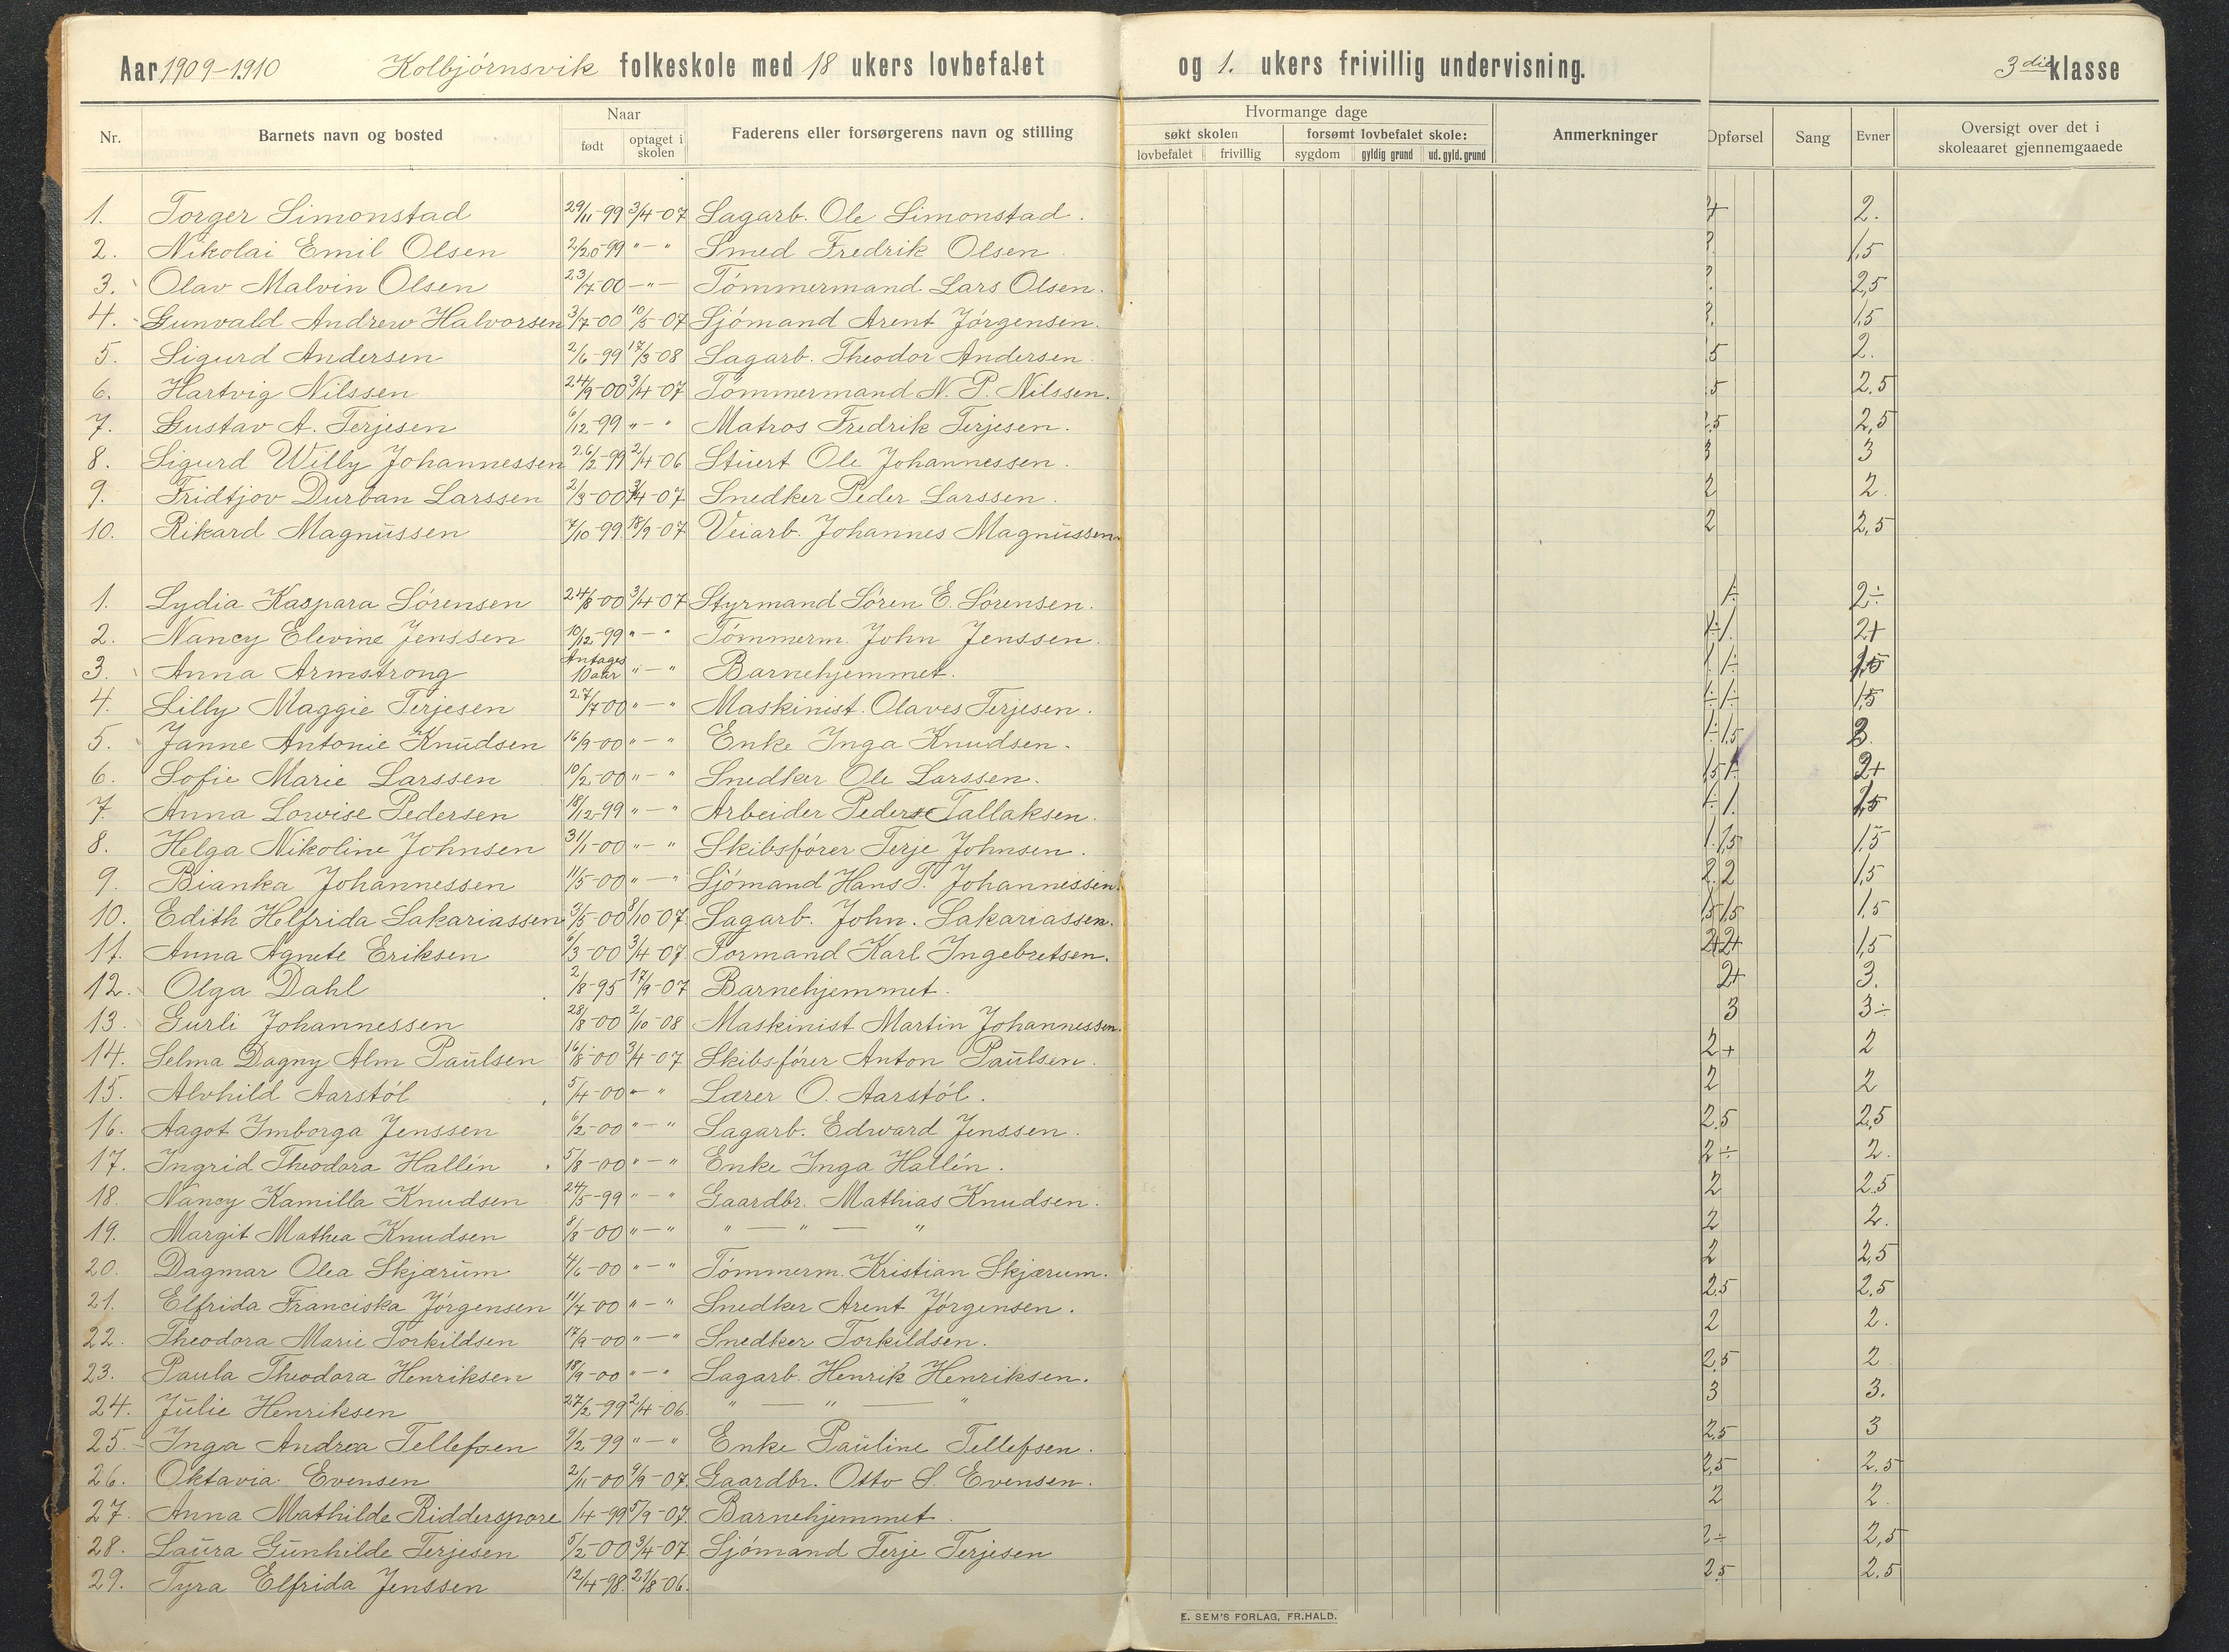 Aar 1909-1910 Kolbjörnsvik folkeskole med 18 ukers lovbefalet og 1. ukers frivillig undervisning. 3die klasse
Nr. Barnets navn og bosted Naar født optaget i skolen Faderens eller forsørgerens navn og stilling Hvormange dage søkt skolen lovbefalet frivillig forsømt lovbefalet skole: sygdom gyldig grund ud. gyld. grund Anmerkninger Opførsel Sang Evner Oversigt over det i skoleaaret gjennemgaaede
1. Torger Simonstad 29/11-99 3/4-07 Sagarb. Ole Simonstad. 2.
2. Nikolai Emil Olsen "-" Smed Fredrik Olsen. 1,5
3. Olav Malvin Olsen 23/7-00 -"- Tömmermand Lars Olsen. 2,5
4. Gunvald Andrew Halvorsen 3/7-00 10/5-07 Sjömand Arent Jörgensen. 1,5
5. Sigurd Andersen 2/6-99 17/3-08 Sagarb. Theodor Andersen. 5 2.
6. Hartvig Nilssen 24/9-00 3/4-07 Tömmermand N. P. Nilssen. 5 2.5
7. Gustav A. Terjesen 6/12-99 "-" Matros Fredrik Terjesen. 2,5 2,5
8. Sigurd Willy Johannessen 26/2-99 2/4-06 Stuert Ole Johannessen. 3 3
9. Fridtjov Durban Larssen 2/3-00 3/4-07 Snedker Peder Larssen. 2 2.
10. Rikard Magnussen 7/10-99 18/9-07 Veiarb. Johannes Magnussen. 2 2,5
1. Lydia Kaspara Sörensen 24/8-00 3/4-07 Styrmand Sören E. Sörensen. 1÷ 2÷
2. Nancy Elevine Jenssen 10/12-99 "-" Tömmerm. John Jenssen. 1÷ 1. 2+
3. Anna Armstrong Antages 10 aar "-" Barnehjemmet. 1. 1÷
4. Lilly Maggie Terjesen 27/7-00 "-" Maskinist. Olaves Terjesen. 1÷ 1÷ 1,5
5. Janne Antonie Knudsen 16/9-00 "-" Enke Inga Knudsen. 1÷ 1,5
6. Sofie Marie Larssen 10/2-00 "-" Snedker Ole Larssen. 1,5 1÷ 2+
7. Anna Lovise Pedersen 18/12-99 "-" Arbeider Peder Tallaksen. 1÷ 1.
8. Helga Nikoline Johnsen 31/1-00 "-" Skibsförer Terje Johnsen. 1. 1,5 1,5
9. Bianka Johannessen 11/5-00 "-" Sjömand Hans T. Johannessen. 2. 2 1,5
10. Edith Helfrida Sakariassen 3/5-00 8/10-07 Sagarb. John. Sakariassen. 1,5 1,5 1,5
11. Anna Agnete Eriksen 6/3-00 3/4-07 Formand Karl Ingebretsen. 2+ 2+ 1,5
12. Olga Dahl 2/8-95 17/9-07 Barnehjemmet. 2+ 3.
13. Gurli Johannessen 28/8-00 2/10-08 Maskinist Martin Johannessen. 3 3÷
14. Selma Dagny Alm Paulsen 16/8-00 3/4-07 Skibsförer Anton Paulsen. 2+ 2
15. Alvhild Aarstöl 5/4-00 "-" Lærer O. Aarstöl. 2 2
16. Aagot Imborga Jenssen 6/2-00 "-" Sagarb. Edward Jenssen. 2.5 2,5
17. Ingrid Theodora Hallén 5/8-00 "-" Enke Inga Hallén. 2÷ 2.
18. Nancy Kamilla Knudsen 24/5-99 "-" Gaardbr. Mathias Knudsen. 2 2.5
19. Margit Mathea Knudsen 8/8-00 "-" " — " — " 2 2.
20. Dagmar Olea Skjærum 4/6-00 "-" Tömmerm. Kristian Skjærum. 2 2,5
21. Elfrida Franciska Jörgensen 11/7-00 "-" Snedker Arent Jörgensen. 2,5 2,5
22. Theodora Marie Torkildsen 17/9-00 "-" Snedker Torkildsen. 2 2.
23. Paula Theodora Henriksen 18/9-00 "-" Sagarb. Henrik Henriksen. 2,5 2
24. Julie Henriksen 27/2-99 2/4-06. " — " — " 3 3.
25. Inga Andrea Tellefsen 9/2-99 "-" Enke Pauline Tellefsen. 2,5 3
26. Oktavia Evensen 2/11-00 9/9-07. Gaardbr. Otto S. Evensen. 2,5 2.5
27. Anna Mathilde Ridderspore 1/4-99 5/9-07. Barnehjemmet. 2 2.
28. Laura Gunhilde Terjesen 5/2-00 3/4-07. Sjömand Terje Terjesen 2÷ 2,5
29. Tyra Elfrida Jenssen 12/4-98. 21/8-06. 2.5 2.5
E. SEM'S FORLAG, FR.HALD.